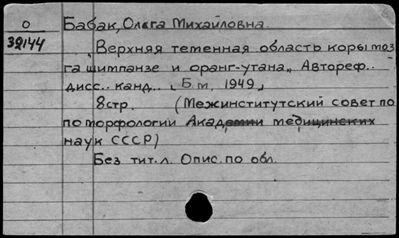 О Бабак, Ольга Михайловна.
39144
Верхняя теменная область коры моз
га шимпанзе и оранг-утана. Автореф..
дисс.. канд.. Б.м, 1949
8стр. (Межинститутский совет по
по морфологии Академии медицинских
наук СССР)
Без тит.л. Опис. по обл.